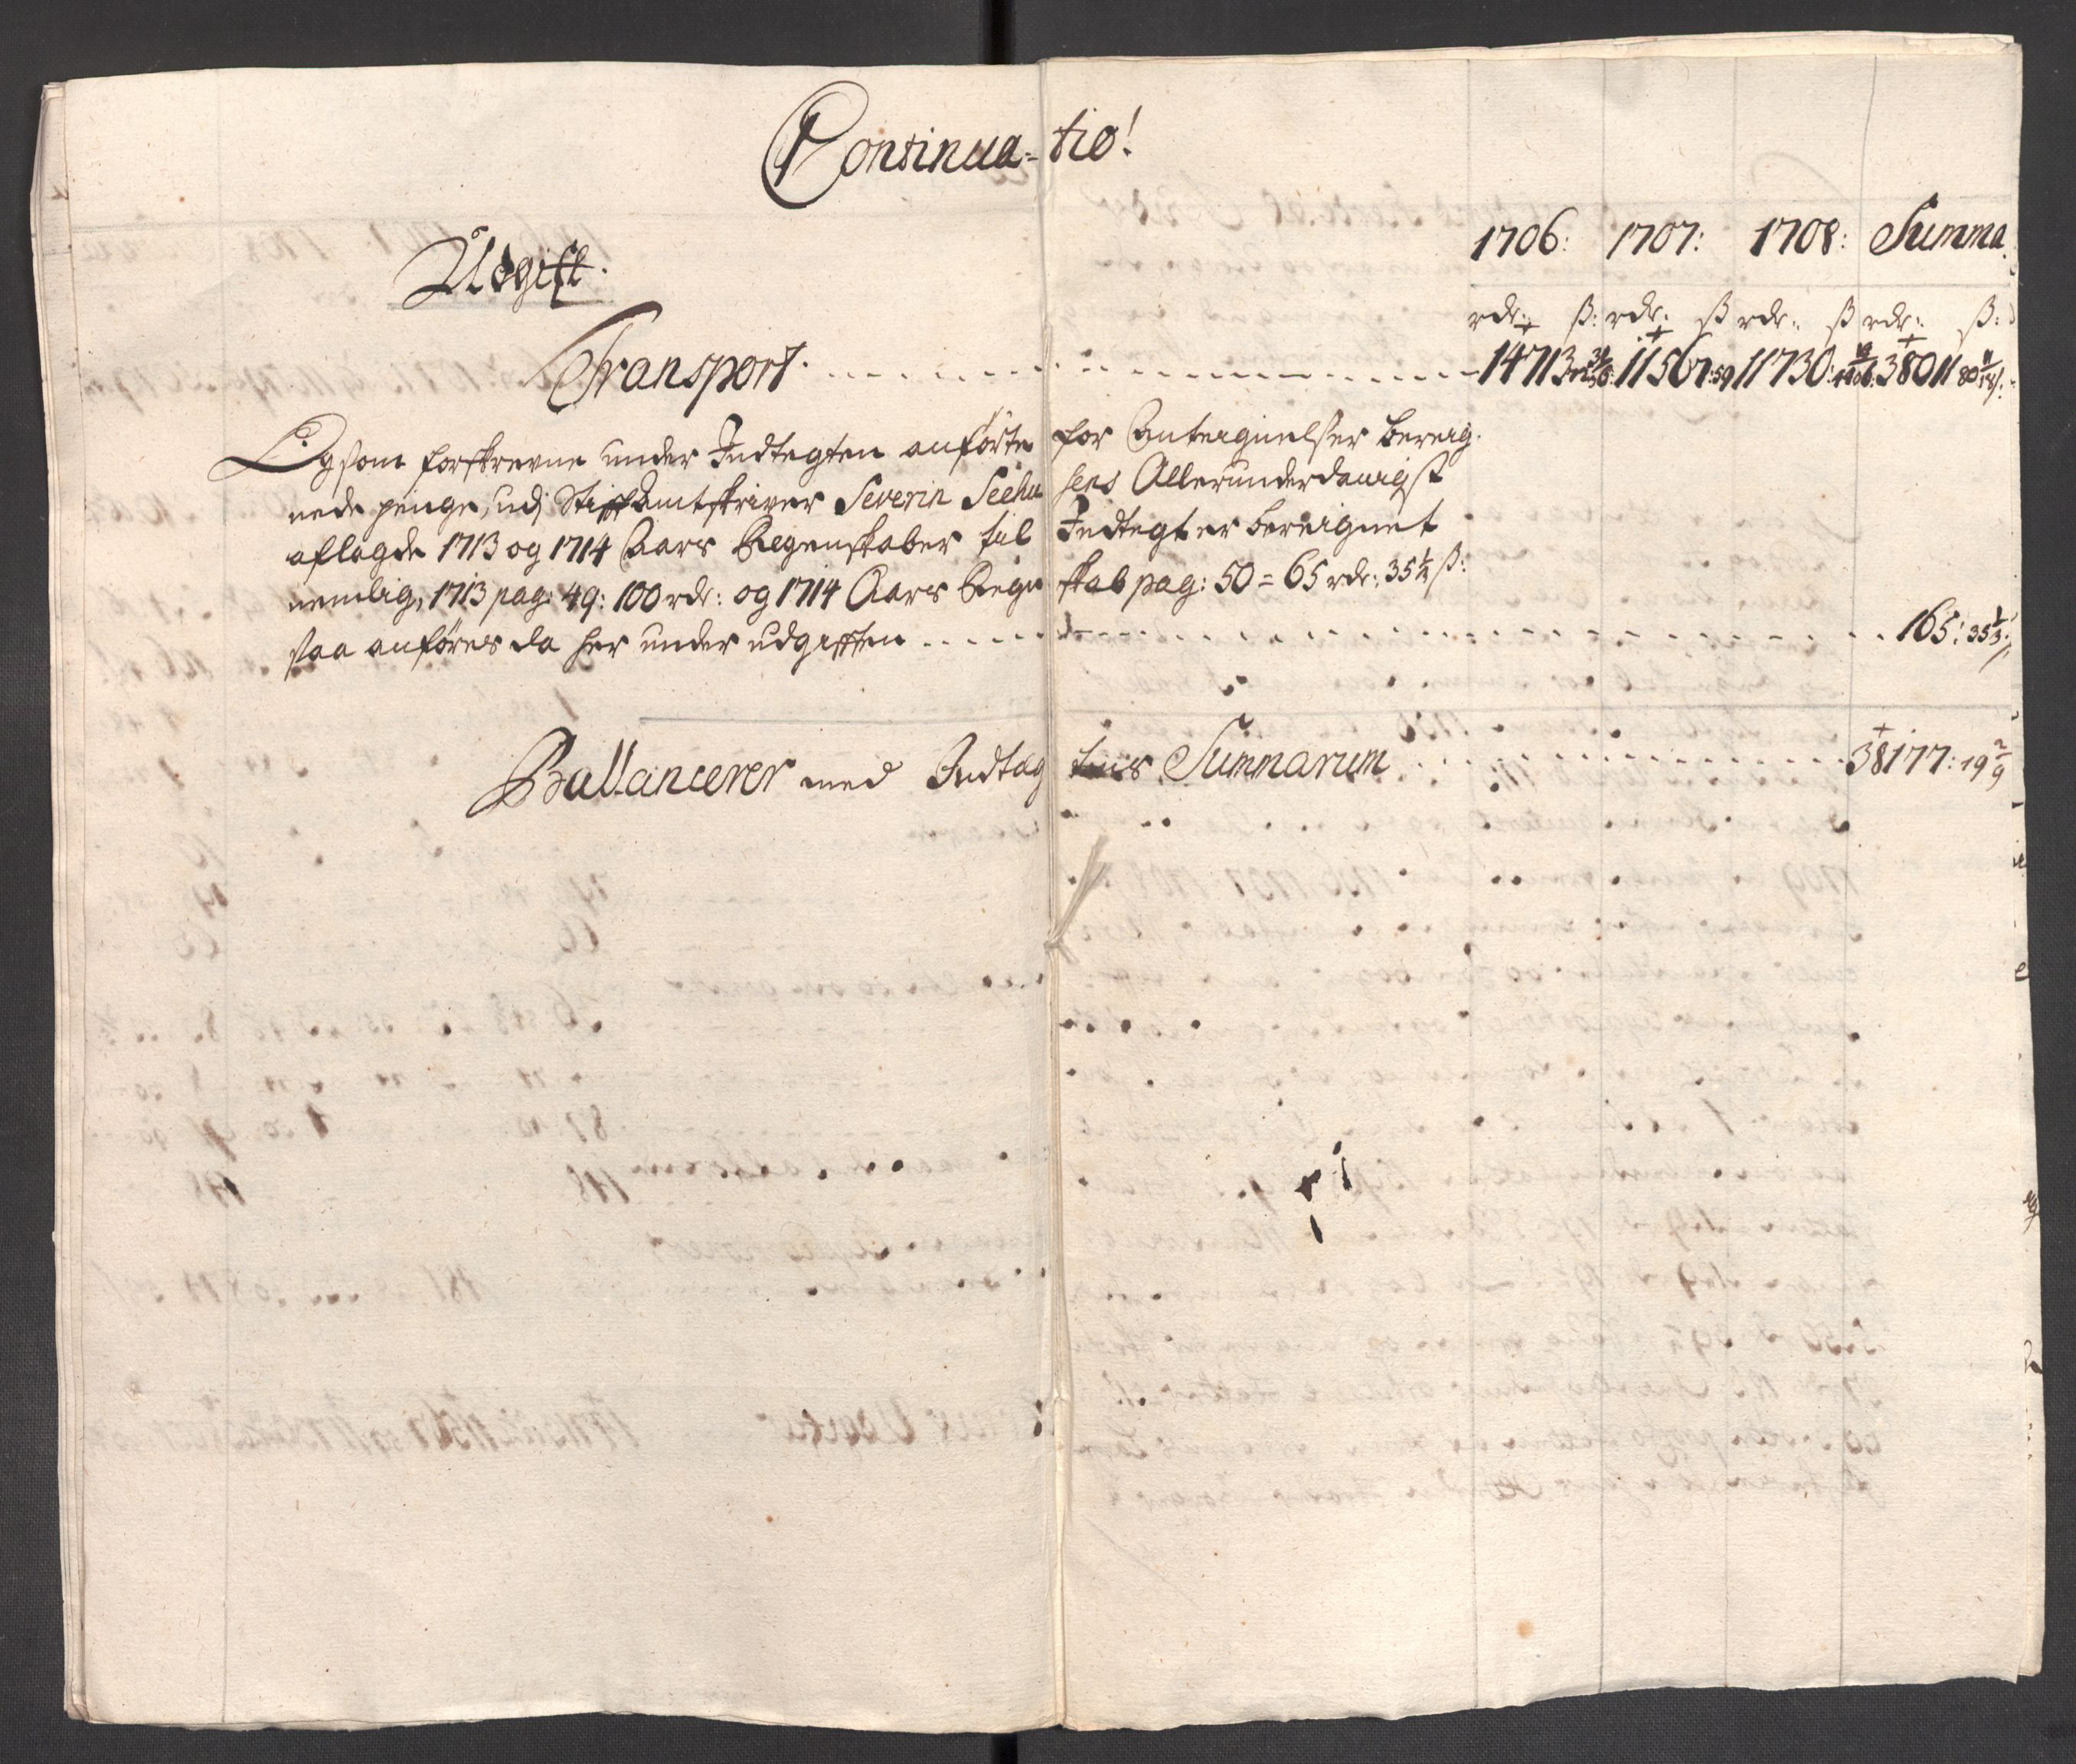 Continua-tio!
Udgift.
1706: 1707: 1708: Summa.
rdr: ß: rdr: ß rdr: ß rdr: ß:
Transport 14713 11567:59 11730: 38011
Og som forskrevne under Indtegten anförte for Antegnelser bereig-
nede penge, udj Stifftamtskriver Severin Seehusens Allerunderdanigst
aflagde 1713 og 1714 Aars Regenskaber til Indtegt er bereignet
nemblig, 1713 pag: 49: 100 rdr: og 1714 Aars Regnskab pag: 50 = 65 rdr: 35 1/3 ß:
saa anföres da her under udgifften 165: 35 1/3
Ballancerer med Indtagtens Summarum 38177: 19 2/9